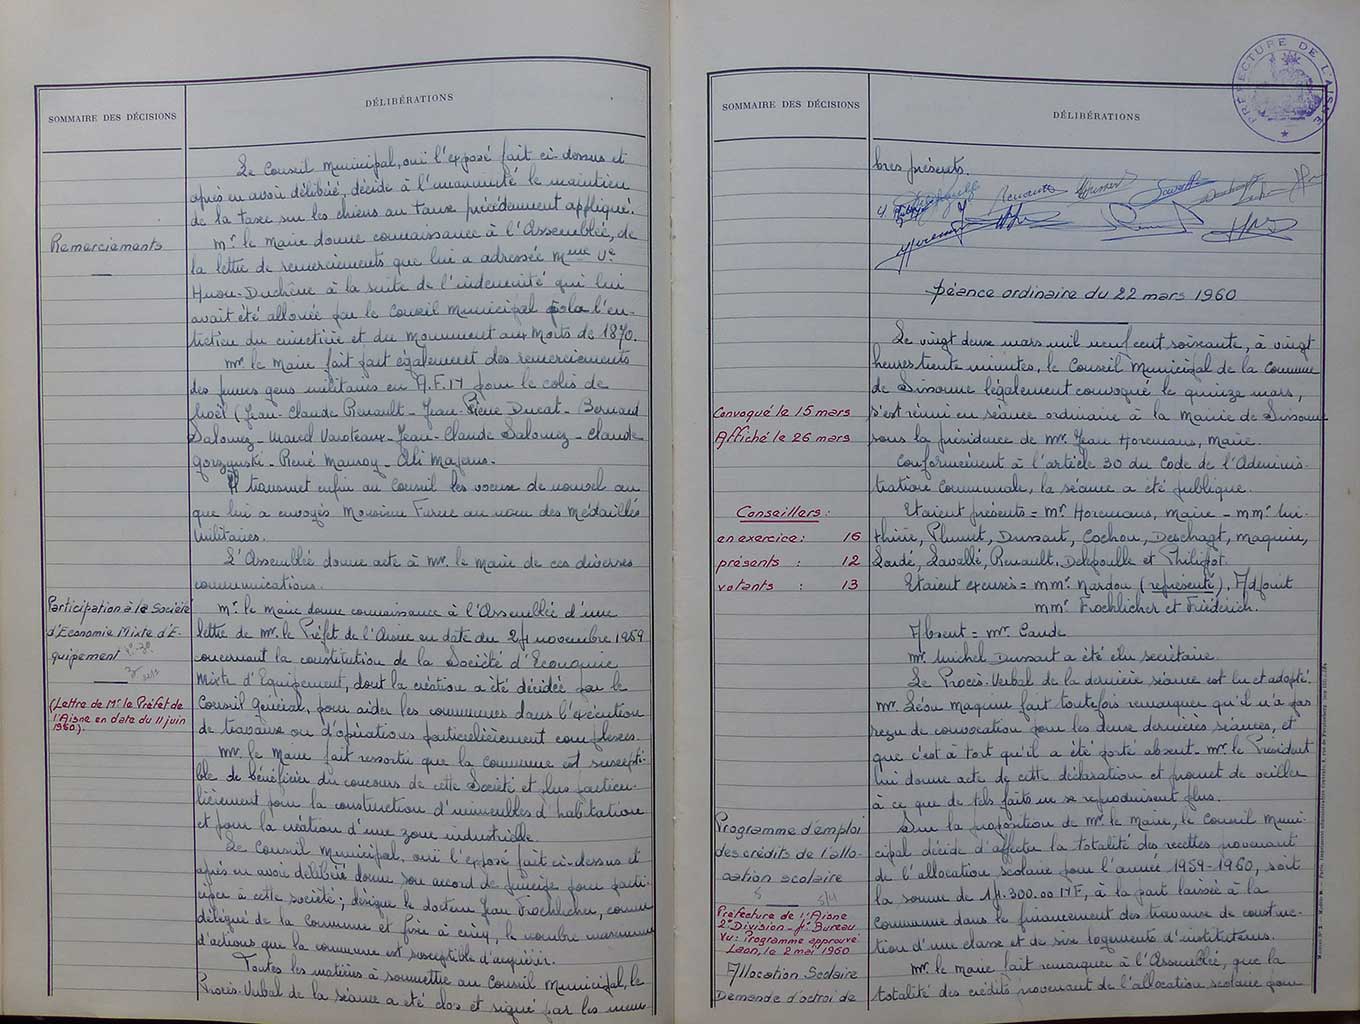 SOMMAIRE DES DÉCISIONS
DÉLIBÉRATIONS
Le Conseil Municipal, ouï l'exposé fait ci-dessus et
après en avoir délibéré, décide à l'unanimité le maintien
de la taxe sur les chiens au taux précédemment appliqué.
Remerciements
Mr le Maire donne connaissance à l'Assemblée, de
la lettre de remerciements que lui a adressée Mme Ve
Huon-Duchêne à la suite de l'indemnité qui lui
avait été allouée par le Conseil Municipal l'en-
tretien du cimetière et du Monument aux Morts de 1870.
Mr le Maire fait part également des remerciements
des jeunes gens militaires en A.F.N pour le colis de
Noël (Jean-Claude Renault - Jean-Pierre Ducat - Bernard
Salomez - Varoteaux - Jean-Claude Salomez - Claude
Gorzynski - René Mauroy - Ali
Il transmet enfin au Conseil les voeux de nouvel an
que lui a envoyés Monsieur au nom des Médaillés
Militaires.
L'Assemblée donne acte à Mr le Maire de ces diverses
communications.
Participation à la Société
d'Economie Mixte d'E-
quipement
(Lettre de Mr le Préfet de
l'Aisne en date du 11 juin
1960).
Mr le Maire donne connaissance à l'Assemblée d'une
lettre de Mr le Préfet de l'Aisne en date du 24 novembre 1959
concernant la constitution de la Société d'Economie
Mixte d'Equipement, dont la création a été décidée par le
Conseil Général, pour aider les communes dans l'exécution
de travaux ou d'opérations particulièrement complexes.
Mr le Maire fait ressortir que la commune est suscepti-
ble de bénéficier du concours de cette Société et plus particu-
lièrement pour la construction d'immeubles d'habitation
et pour la création d'une zone industrielle.
Le Conseil Municipal, ouï l'exposé fait ci-dessus et
après en avoir délibéré donne son accord de principe pour parti-
ciper à cette société ; désigne le docteur Jean Froehlicher, comme
délégué de la Commune et fixe à cinq, le nombre maximum
d'actions que la commune est susceptible d'acquérir.
Toutes les matières à soumettre au Conseil Municipal, le
Procès-Verbal de la séance a été clos et signé par les mem
SOMMAIRE DES DÉCISIONS
DÉLIBÉRATIONS
PRÉFECTURE DE L'AISNE
bres présents.
Séance ordinaire du 22 mars 1960
Le vingt deux mars mil neuf cent soixante, à vingt
heures trente minutes, le Conseil Municipal de la Commune
de Sissonne légalement convoqué le quinze mars,
s'est réuni en séance ordinaire à la Mairie de Sissonne
sous la présidence de Mr Jean Horemans, Maire.
Convoqué le 15 mars
Affiché le 26 mars
Conformément à l'article 30 du Code de l'Adminis-
tration Communale, la séance a été publique.
Conseillers :
en exercice : 16
présents : 12
votants : 13
Etaient présents = Mr Horemans, Maire - MMr
Plumet, Dussart, Cochon, Deschagt, Maquin,
Lavallé, Renault, Delepoulle et Philipot.
Etaient excusés = MMr Nardou (représenté), Adjoint
MMr Froehlicher et Friderich.
Absent = Mr Caude
Mr Michel Dussart a été élu secrétaire.
Le Procès-Verbal de la dernière séance est lu et adopté.
Mr Léon Maquin fait toutefois remarquer qu'il n'a pas
reçu de convocation pour les deux dernières séances, et
que c'est à tort qu'il a été porté absent - Mr le Président
lui donne acte de cette déclaration et promet de veiller
à ce que de tels faits ne se reproduisent plus.
Programme d'emploi
des crédits de l'allo-
cation scolaire
Préfecture de l'Aisne
2e Division - 4e Bureau
Vu : Programme approuvé
Laon, le 2 mai 1960
Sur la proposition de Mr le Maire, le Conseil Muni-
cipal décide d'affecter la totalité des recettes provenant
de l'allocation scolaire pour l'année 1959-1960, soit
la somme de NF, à la part laissée à la
Commune dans le financement des travaux de construc-
tion d'une classe et de six logements d'instituteurs.
Allocation Scolaire
Demande d'octroi de
Mr le Maire fait remarquer à l'Assemblée, que la
totalité des crédits provenant de l'allocation scolaire pour